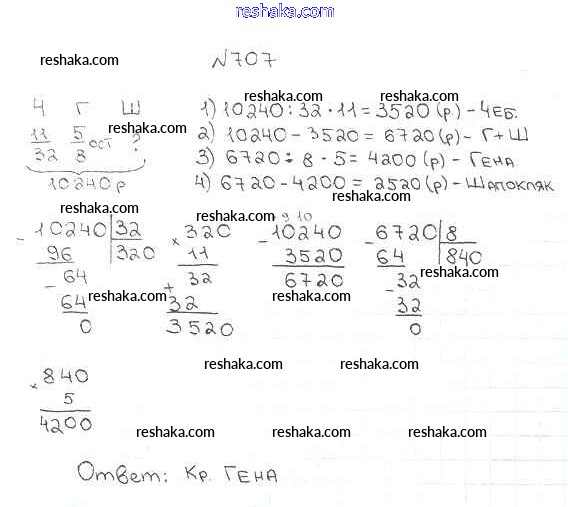 www.reshaka.com
reshaka.com
№707
4 Г Ш
11/32 5/8 ост ?
10240р
reshaka.com
reshaka.com
1) 10240 : 32 · 11 = 3520 (р) - 4ЕБ.
2) 10240 - 3520 = 6720 (р) - Г + Ш
3) 6720 : 8 · 5 = 4200 (р) - ГЕНА
4) 6720 - 4200 = 2520 (р) - ШАПОКЛЯК
reshaka.com
reshaka.com
reshaka.com
reshaka.com
- 10240 | 32
96 | 320
- 64
64
0
× 320
11
32
+
32
3520
9 10
- 10240
3520
6720
- 6720 | 8
64 | 840
- 32
32
0
reshaka.com
reshaka.com
reshaka.com
reshaka.com
× 840
5
4200
reshaka.com
reshaka.com
reshaka.com
reshaka.com
reshaka.com
Ответ: Кр. ГЕНА
www.reshaka.com